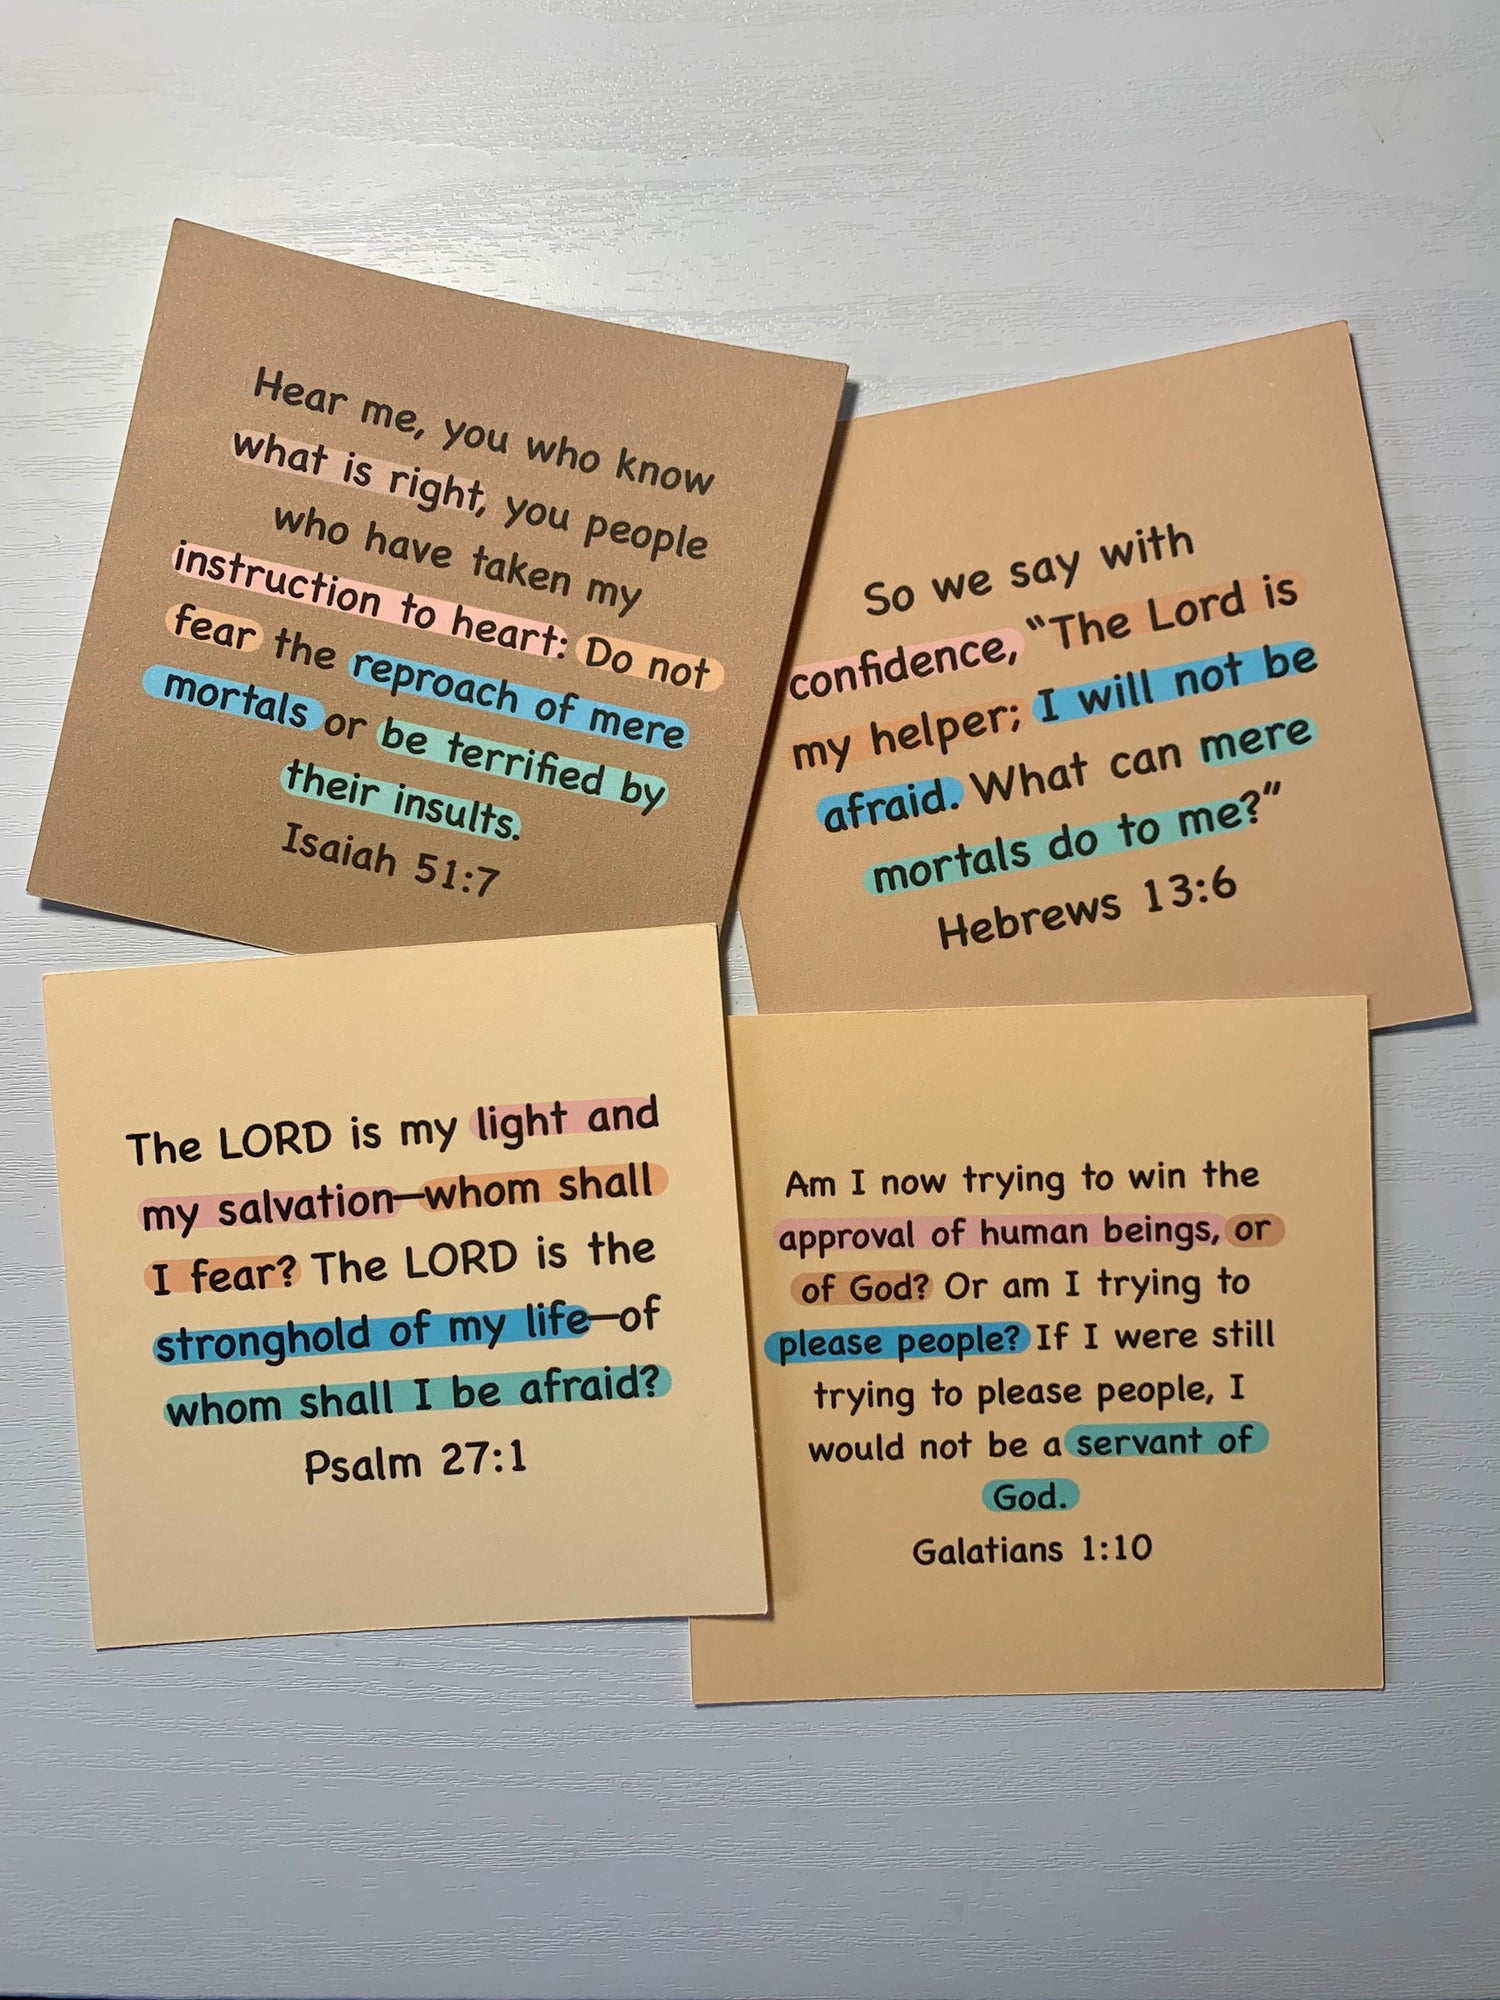 Hear me, you who know
what is right, you people
who have taken my
instruction to heart: Do not
fear the reproach of mere
mortals or be terrified by
their insults.
Isaiah 51:7
So we say with
confidence, “The Lord is
my helper; I will not be
afraid. What can mere
mortals do to me?”
Hebrews 13:6
The LORD is my light and
my salvation—whom shall
I fear? The LORD is the
stronghold of my life—of
whom shall I be afraid?
Psalm 27:1
Am I now trying to win the
approval of human beings, or
of God? Or am I trying to
please people? If I were still
trying to please people, I
would not be a servant of
God.
Galatians 1:10